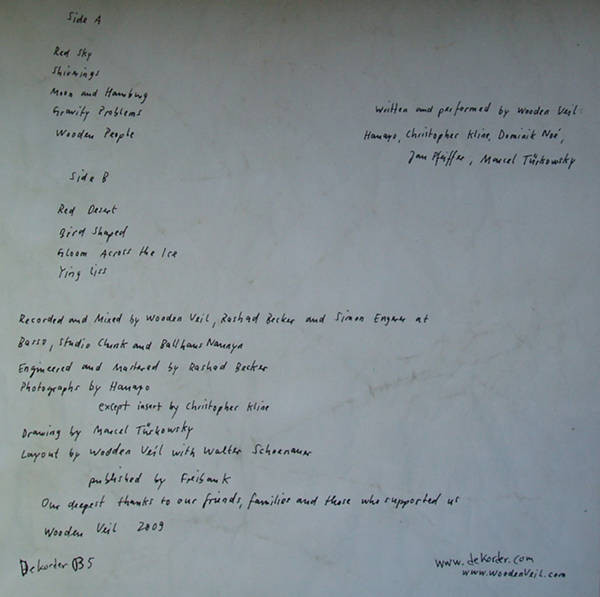 Side A
Red Sky
Shivrings
Moon and Hamburg
Gravity Problems
Wooden People
Written and performed by Wooden Veil:
Hanayo, Christopher Kline, Dominik Noé,
Jan Pfeiffer, Marcel Türkowsky
Side B
Red Desert
Bird Shaped
Gloom Across the Ice
Ying Liss
Recorded and Mixed by Wooden Veil, Rashad Becker and Simon at
Basso, Studio Chunk and Ballhaus Naunyn
Engineered and Mastered by Rashad Becker
Photographs by Hanayo
except insert by Christopher Kline
Drawing by Marcel Türkowsky
Layout by Wooden Veil with Walter Schoenauer
published by Freibank
Our deepest thanks to our friends, families and those who supported us
Wooden Veil 2009
Dekorder
www.dekorder.com
www.woodenveil.com